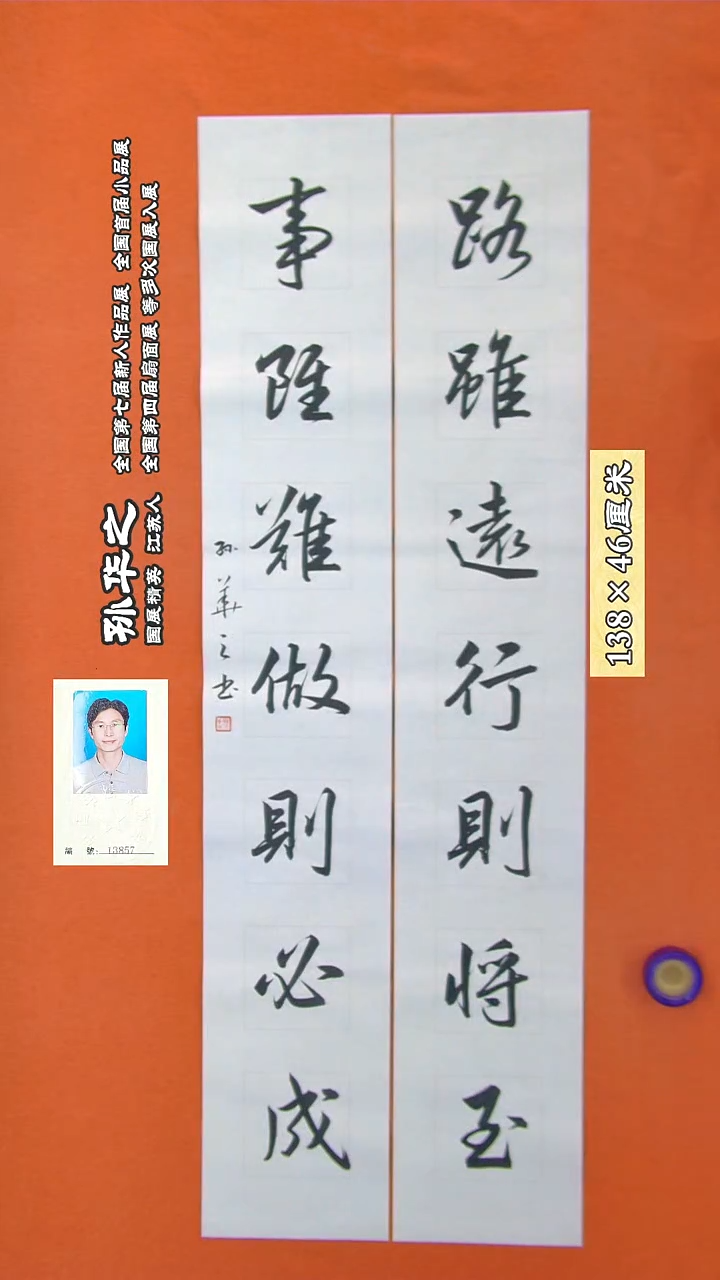 路雖遠行則將至
事雖難做則必成
孙華之书
孙华之
国展精英 江苏人
全国第七届新人作品展 全国首届小品展
全国第四届扇面展 等多次国展入展
138×46厘米
編 號: 13857